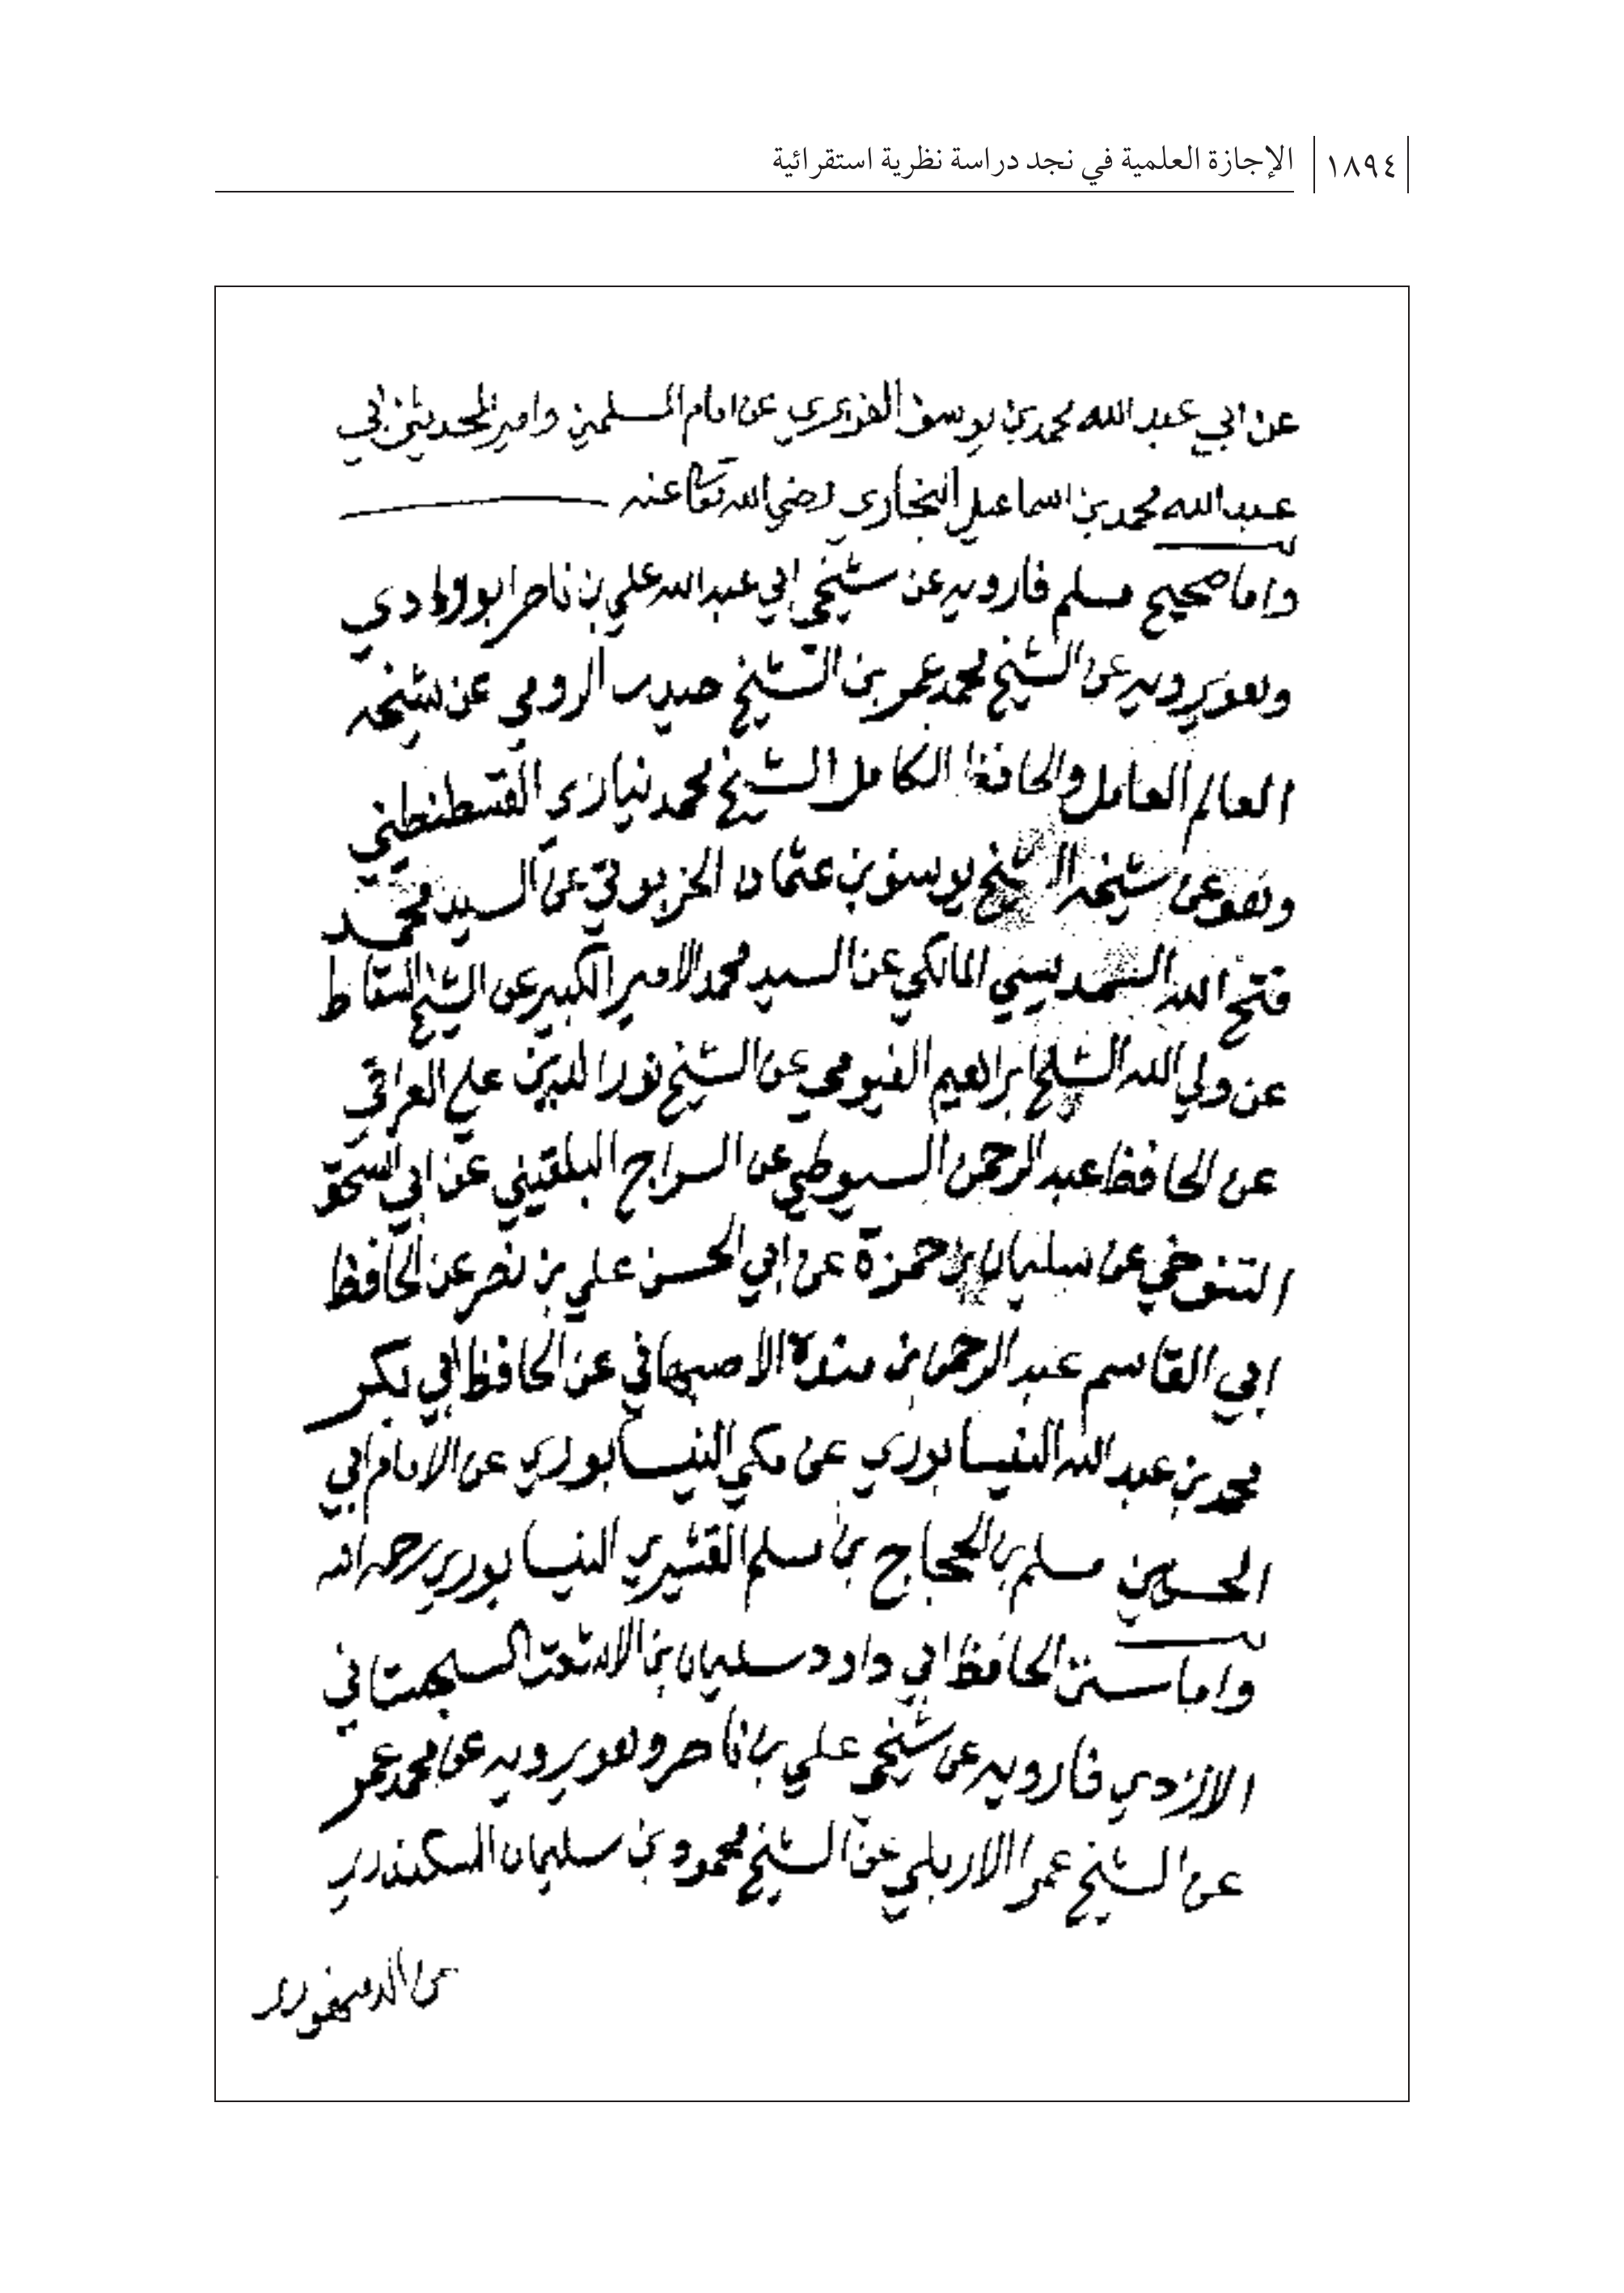 ١٨٩٤ الإجازة العلمية في نجد دراسة نظرية استقرائية
عن ابي عبد الله محمد بن يوسف الفربري عن امام المسلمين وامير المحدثين ابي
عبد الله محمد بن اسماعيل البخاري رضي الله تعا عنه
واما صحيح مسلم فارويه عن شيخي ابي عبد الله علي بن ناصر ابو وادي
وهو يرويه عن الشيخ محمد عمر بن الشيخ حيدر الرومي عن شيخه
العالم العامل والحافظ الكامل الشيخ محمد نيازي القسطنطني
وهو عن شيخه الشيخ يوسف بن عثمان الخربوتي عن السيد محمد
فتح الله السمديسي المالكي عن السيد محمد الامير الكبير عن الشيخ السقاط
عن ولي الله الشيخ ابراهيم الفيومي عن الشيخ نور الدين علي العراقي
عن الحافظ عبد الرحمن السيوطي عن السراج البلقيني عن ابي اسحق
التنوخي عن سليمان بن حمزة عن ابي الحسن علي بن نصر عن الحافظ
ابي القاسم عبد الرحمن بن مندة الاصبهاني عن الحافظ ابي بكر
محمد بن عبد الله النيسابوري عن مكي النيسابوري عن الامام ابي
الحسين مسلم بن الحجاج بن مسلم القشيري النيسابوري رحمه الله
واما سنن الحافظ ابي داود سليمان بن الاشعث السجستاني
الازدي فارويه عن شيخي علي بن ناصر وهو يرويه عن محمد عمر
عن الشيخ عمر الاربلي عن الشيخ محمود بن سليمان السكندري
عن